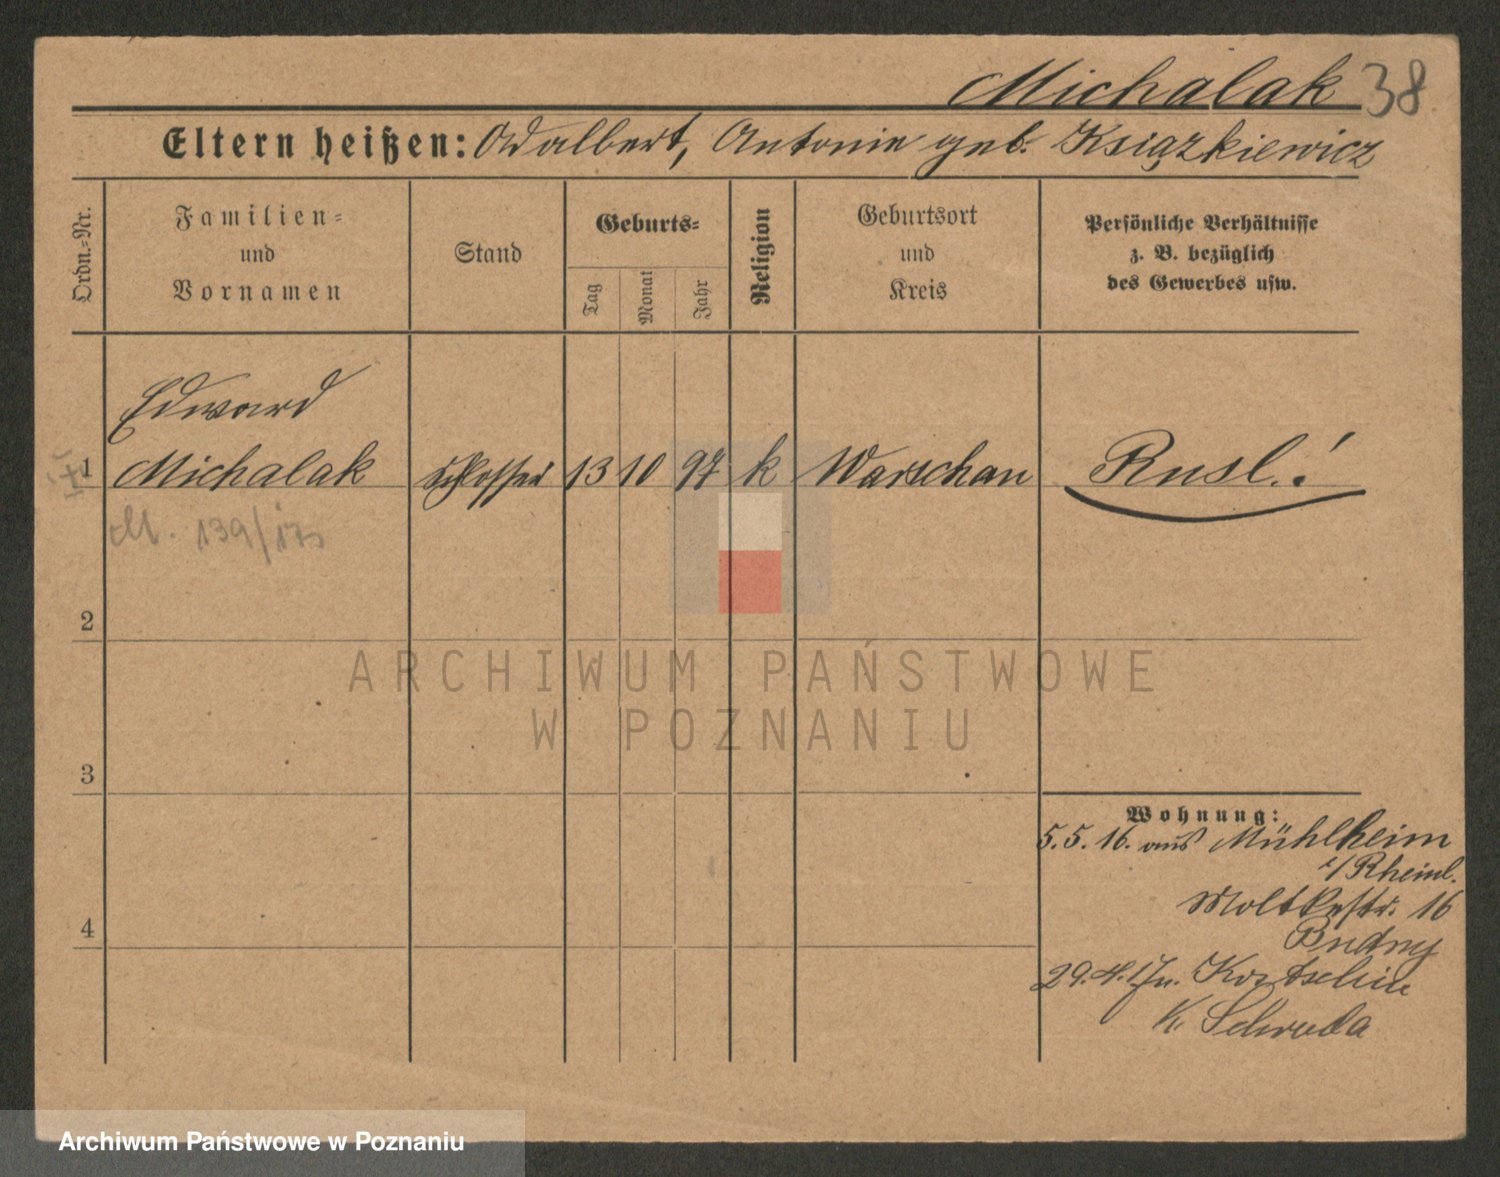 Michalak 38
Eltern heißen: Adalbert, Antonie geb. Książkiewicz
Ordn.-Nr.
Familien-
und
Vornamen
Stand
Geburts-
Tag
Monat
Jahr
Religion
Geburtsort
und
Kreis
Persönliche Verhältnisse
z. B. bezüglich
des Gewerbes usw.
Edward
1 Michalak Schlosser 13 10 97 k Warschau Rusl.!
M. 139/
2
ARCHIWUM PAŃSTWOWE
W POZNANIU
3
Wohnung:
5.5.16. aus Mühlheim
/Rheinl.
Moltkestr. 16
Budny
29.4.17 n.
K. Schroda
4
Archiwum Państwowe w Poznaniu